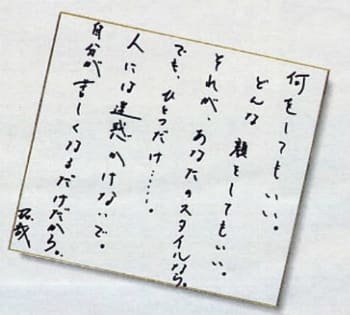 何をしてもいい。
どんな顔をしてもいい。
それが、あなたのスタイルなら。
でも、ひとつだけ……。
人には迷惑かけないで。
自分が苦しくなるだけだから。